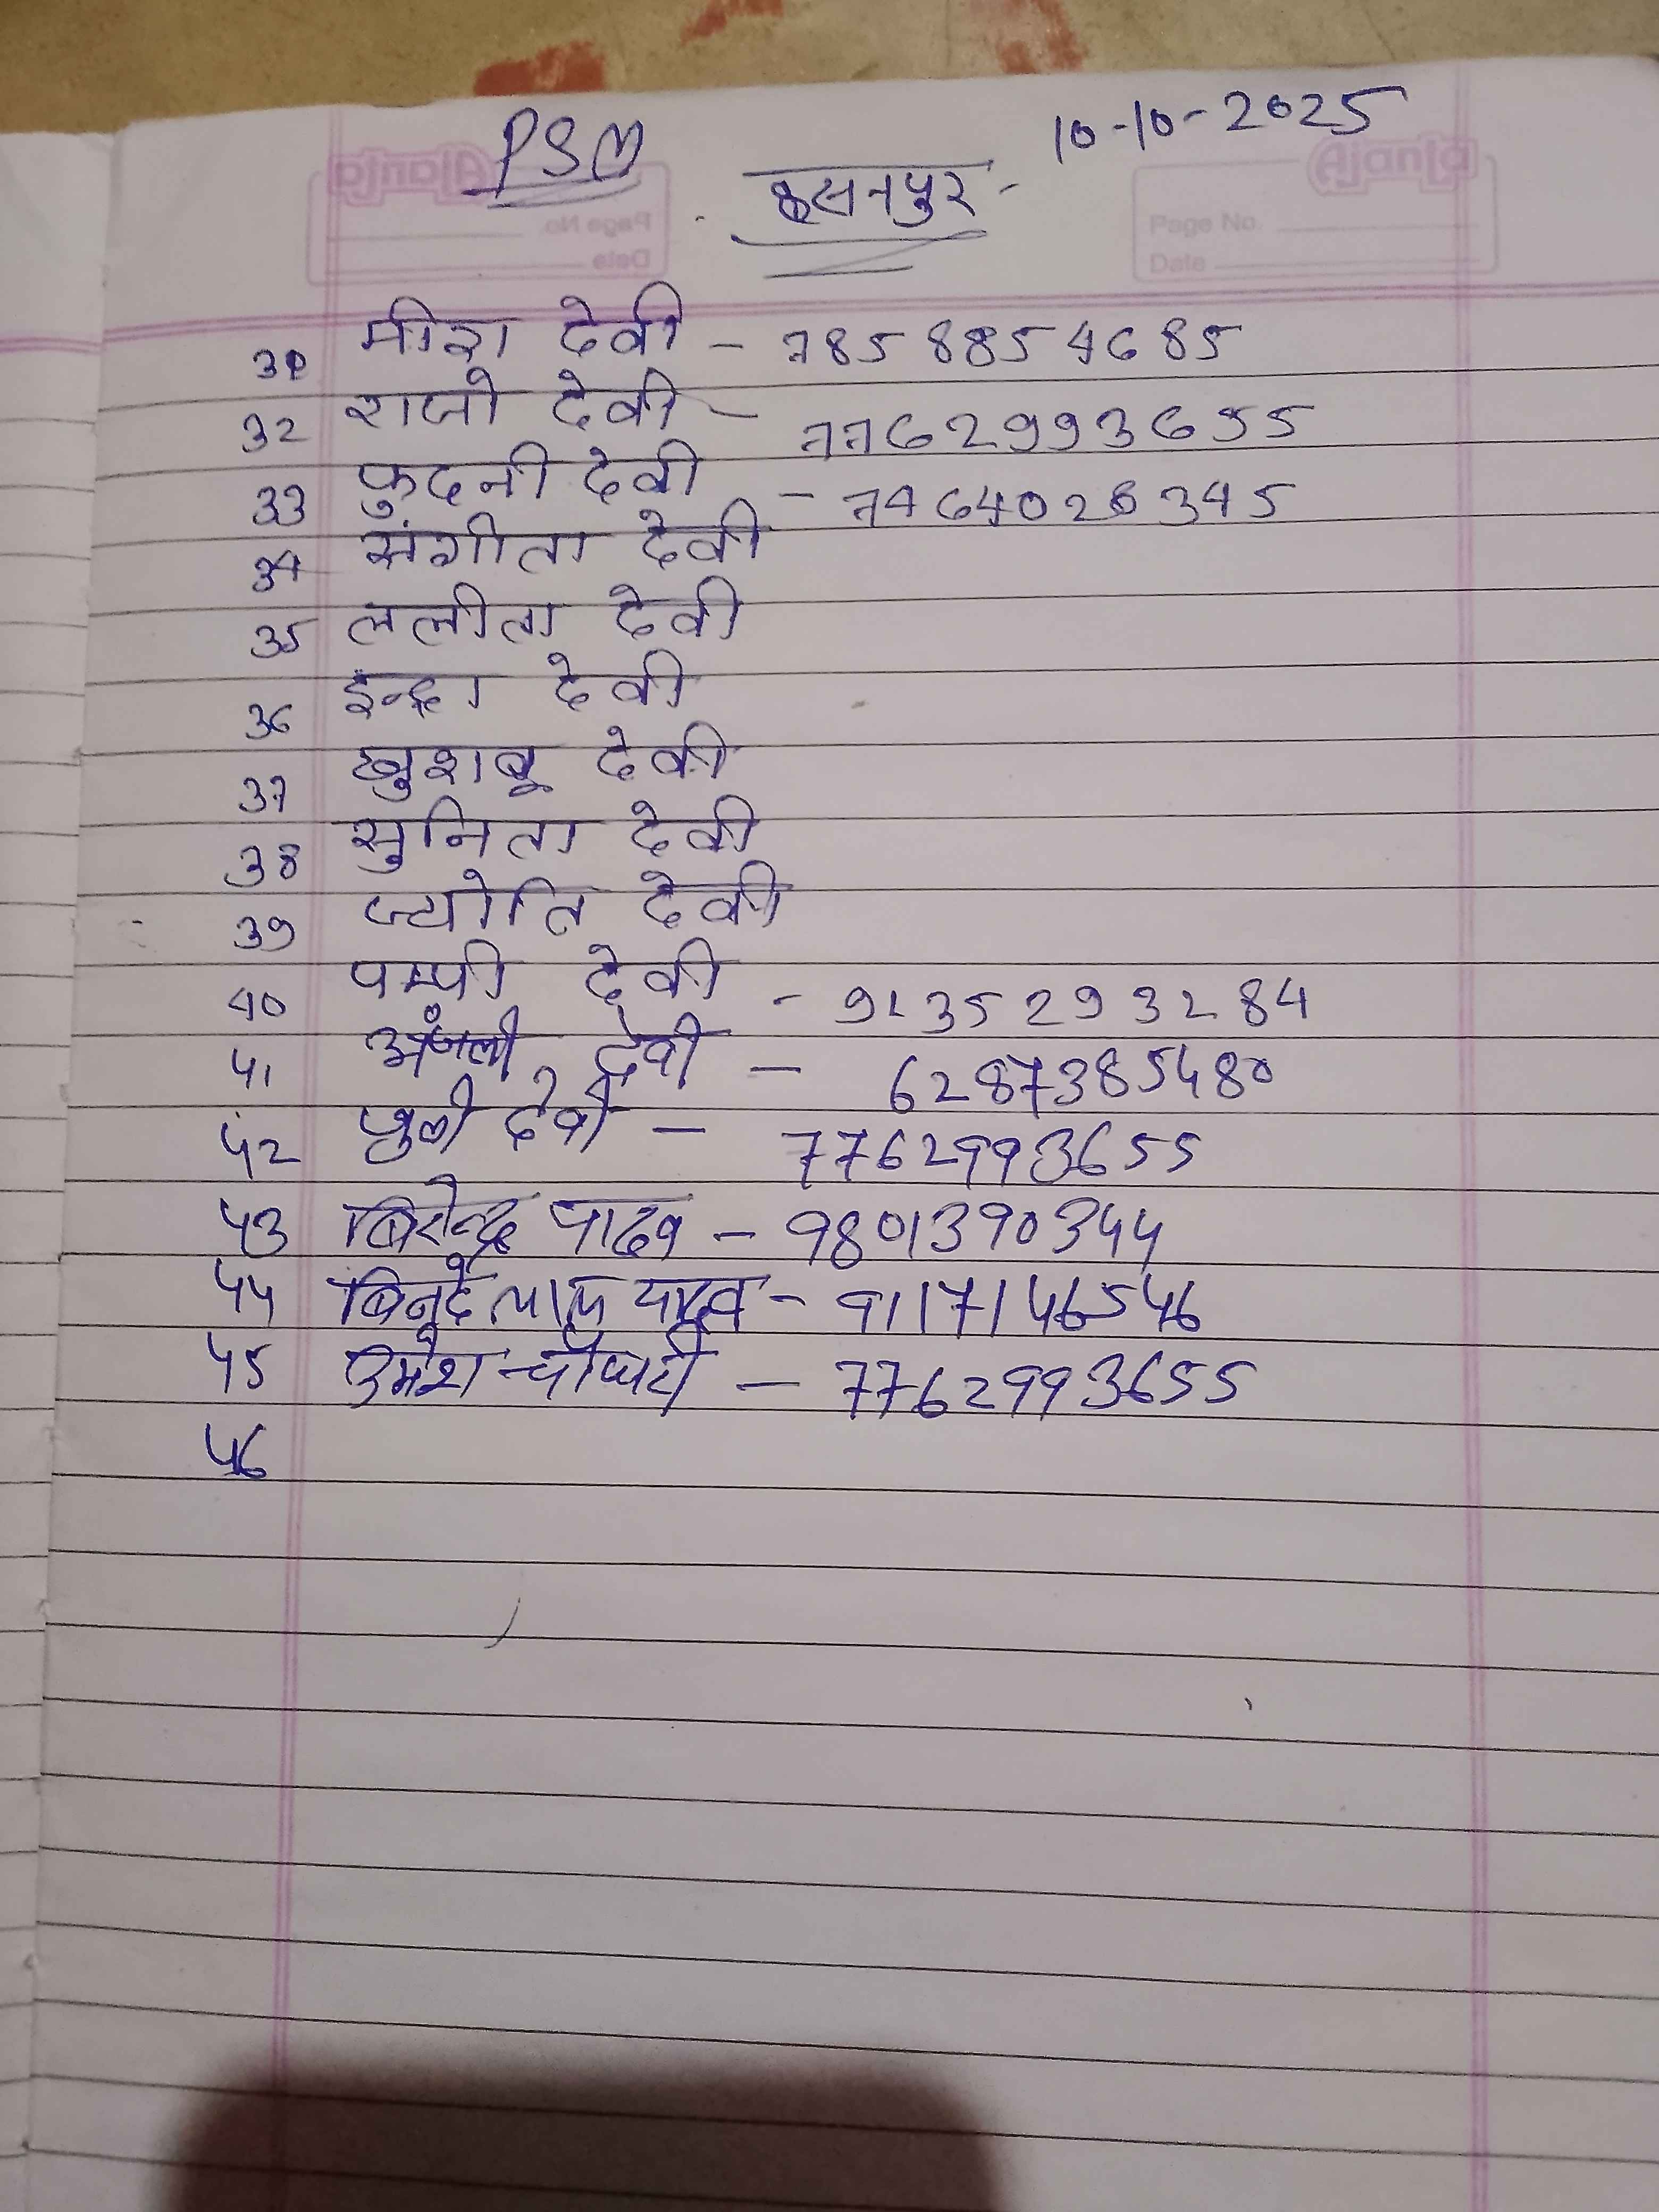 PSM
10-10-2025
हसनपुर -
Ajanta
Page No.
Date
31 मीरा देवी - 7858854685
32 राजो देवी - 77629993655
33 फुदनी देवी - 7464026345
34 संगीता देवी
35 ललीता देवी
36 इन्द्रा देवी
37 खुशबू देवी
38 सुनिता देवी
39 ज्योति देवी
40 पम्पी देवी - 9135293284
41 अंजली देवी - 6287385480
42 फुली देवी - 7762993655
43 बिरेन्द्र यादव - 9801390344
44 यादव - 9117146546
45 उमेश चौधरी - 7762993655
46